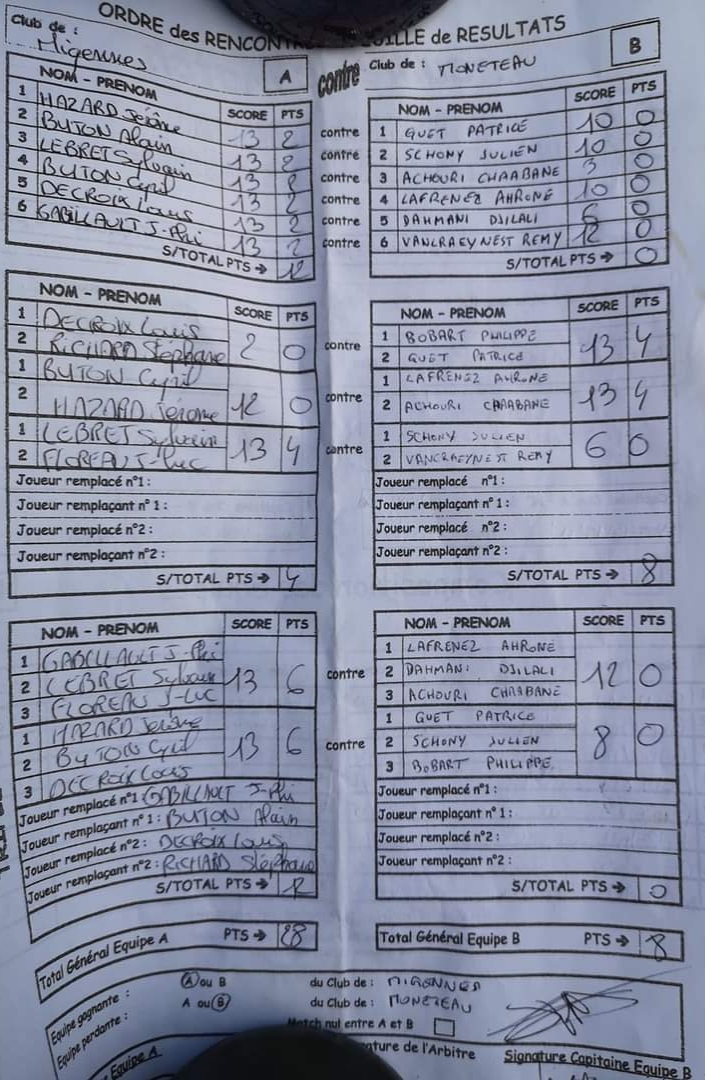 ORDRE des RENCONT
ILLE de RESULTATS
Club de : Migennes
A
contre
Club de : MONETEAU
B
NOM - PRENOM SCORE PTS
1 HAZARD Jérôme 13 2
2 BUTON Alain 13 2
3 LEBRET Sylvain 13 2
4 BUTON Cyril 13 2
5 DECROIX Louis 13 2
6 GABILLAULT J-Phi 13 2
S/TOTAL PTS → 12
contre
contre
contre
contre
contre
contre
NOM - PRENOM SCORE PTS
1 GUET PATRICE 10 0
2 SCHONY JULIEN 10 0
3 ACHOURI CHAABANE 3 0
4 LAFRENEZ AHRONE 10 0
5 DAHMANI DJILALI 6 0
6 VANCRAEYNEST REMY 12 0
S/TOTAL PTS → 0
NOM - PRENOM SCORE PTS
1 DECROIX Louis
2 RICHARD Stéphane 2 0
1 BUTON Cyril
2 HAZARD Jérome 12 0
1 LEBRET Sylvain
2 FLOREAU J-Luc 13 4
Joueur remplacé n°1 :
Joueur remplaçant n° 1 :
Joueur remplacé n°2 :
Joueur remplaçant n°2 :
S/TOTAL PTS → 4
contre
contre
contre
NOM - PRENOM SCORE PTS
1 BOBART PHILIPPE
2 GUET PATRICE 13 4
1 LAFRENEZ AHRONE
2 ACHOURI CHAABANE 13 4
1 SCHONY JULIEN
2 VANCRAEYNEST REMY 6 0
Joueur remplacé n°1 :
Joueur remplaçant n° 1 :
Joueur remplacé n°2 :
Joueur remplaçant n°2 :
S/TOTAL PTS → 8
NOM - PRENOM SCORE PTS
1 GABILLAULT J-Phi
2 LEBRET Sylvain 13 6
3 FLOREAU J-LUC
1 HAZARD Jérôme
2 BUTON Cyril 13 6
3 DECROIX Louis
Joueur remplacé n°1 GABILLAULT J-Phi
Joueur remplaçant n° 1 : BUTON Alain
Joueur remplacé n°2 : DECROIX Louis
Joueur remplaçant n°2 : RICHARD Stéphane
S/TOTAL PTS → 12
contre
contre
NOM - PRENOM SCORE PTS
1 LAFRENEZ AHRONE
2 DAHMANI DJILALI 12 0
3 ACHOURI CHAABANE
1 GUET PATRICE
2 SCHONY JULIEN 8 0
3 BOBART PHILIPPE
Joueur remplacé n°1 :
Joueur remplaçant n° 1 :
Joueur remplacé n°2 :
Joueur remplaçant n°2 :
S/TOTAL PTS → 0
Total Général Equipe A PTS → 28
Total Général Equipe B PTS → 8
Equipe gagnante : A ou B du Club de : MIGENNES
Equipe perdante : A ou B du Club de : MONETEAU
Match nul entre A et B
Equipe A
ature de l'Arbitre
Signature Capitaine Equipe B